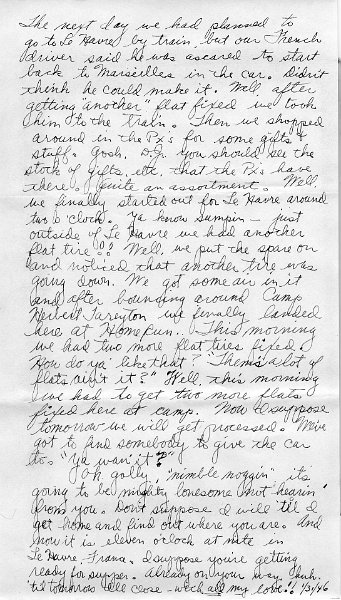 The next day we had planned to
go to Le Havre by train, but our French
driver said he was ascared to start
back to Marseilles in the car. Didn't
think he could make it. Well, after
getting "another" flat fixed we took
him to the train. Then we shopped
around in the Px's for some gifts &
stuff. Gosh, you should see the
stock of gifts, etc. that the Px's have
there. Quite an assortment. Well,
we finally started out for Le Havre around
two o'clock. Ya know sumpin - just
outside of Le Havre we had another
flat tire!! Well, we put the spare on
and noticed that another tire was
going down. We got some air in it
and after bouncing around Camp
Herbert Tareyton we finally landed
here at Home Run. This morning
we had two more flat tires fixed.
How do ya' like that? "Them's a lot of
flats ain't it?" Well, this morning
we had to get two more flats
fixed here at camp. Now I suppose
tomorrow we will get processed. We've
got to find somebody to give the car
to. "Ya wan' it?"
Oh golly, "nimble noggin" it's
going to be mighty lonesome not hearin'
from you. Don't suppose I will 'til I
get home and find out where you are. And
now it is eleven o'clock at nite in
Le Havre, France. I suppose you're getting
ready for supper. Already on your way, huh.
'til tomorrow I'll close - with all my love!! 1/3/46